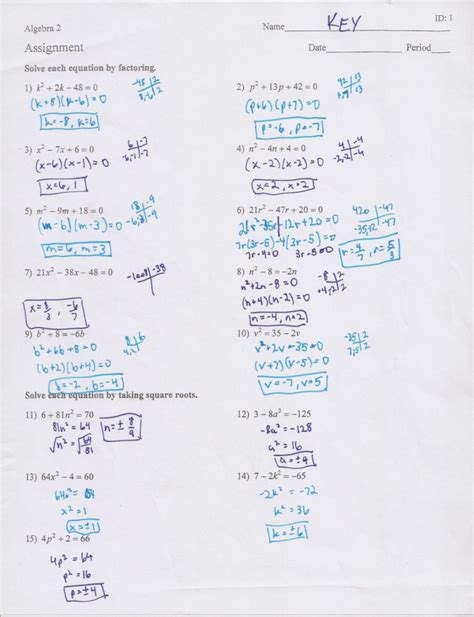 ID: 1
Algebra 2
Name KEY
Assignment
Date Period
Solve each equation by factoring.
1) k² + 2k − 48 = 0
-48 | 2
8, -6 | 2
(k+8)(k-6)=0
k=-8, k=6
2) p² + 13p + 42 = 0
42 | 13
(p+6)(p+7)=0
p=-6, p=-7
3) x² − 7x + 6 = 0
6 | -7
-6, -1 | -7
(x-6)(x-1)=0
x=6, 1
4) n² − 4n + 4 = 0
4 | -4
-2, -2 | -4
(x-2)(x-2)=0
x=2, x=2
5) m² − 9m + 18 = 0
18 | -9
-6, -3 | -9
(m-6)(m-3)=0
m=6, m=3
6) 21r² − 47r + 20 = 0
420 | -47
-35, -12 | -47
21r²-35r-12r+20=0
7r(3r-5)-4(3r-5)=0
7r-4=0 3r-5=0
r=4/7, r=5/3
7) 21x² − 38x − 48 = 0
-1008 | -38
x=8/3, -6/7
8) n² − 8 = −2n
-8 | 2
+4, -2 | 2
n²+2n-8=0
(n+4)(n-2)=0
n=-4, n=2
9) b² + 8 = −6b
8 | 6
4, 2
b²+6b+8=0
(b+2)(b+4)=0
b=-2, b=-4
10) v² = 35 − 2v
-35 | 2
7, -5 | 2
v²+2v-35=0
(v+7)(v-5)=0
v=-7, v=5
Solve each equation by taking square roots.
11) 6 + 81n² = 70
81n²=64
√n²=√64/81
n=±8/9
12) 3 − 8a² = −125
-8a²=-128
a²=16
a=±4
13) 64x² − 4 = 60
64x²=64
x²=1
x=±1
14) 7 − 2k² = −65
-2k²=-72
k²=36
k=±6
15) 4p² + 2 = 66
4p²=64
p²=16
p=±4